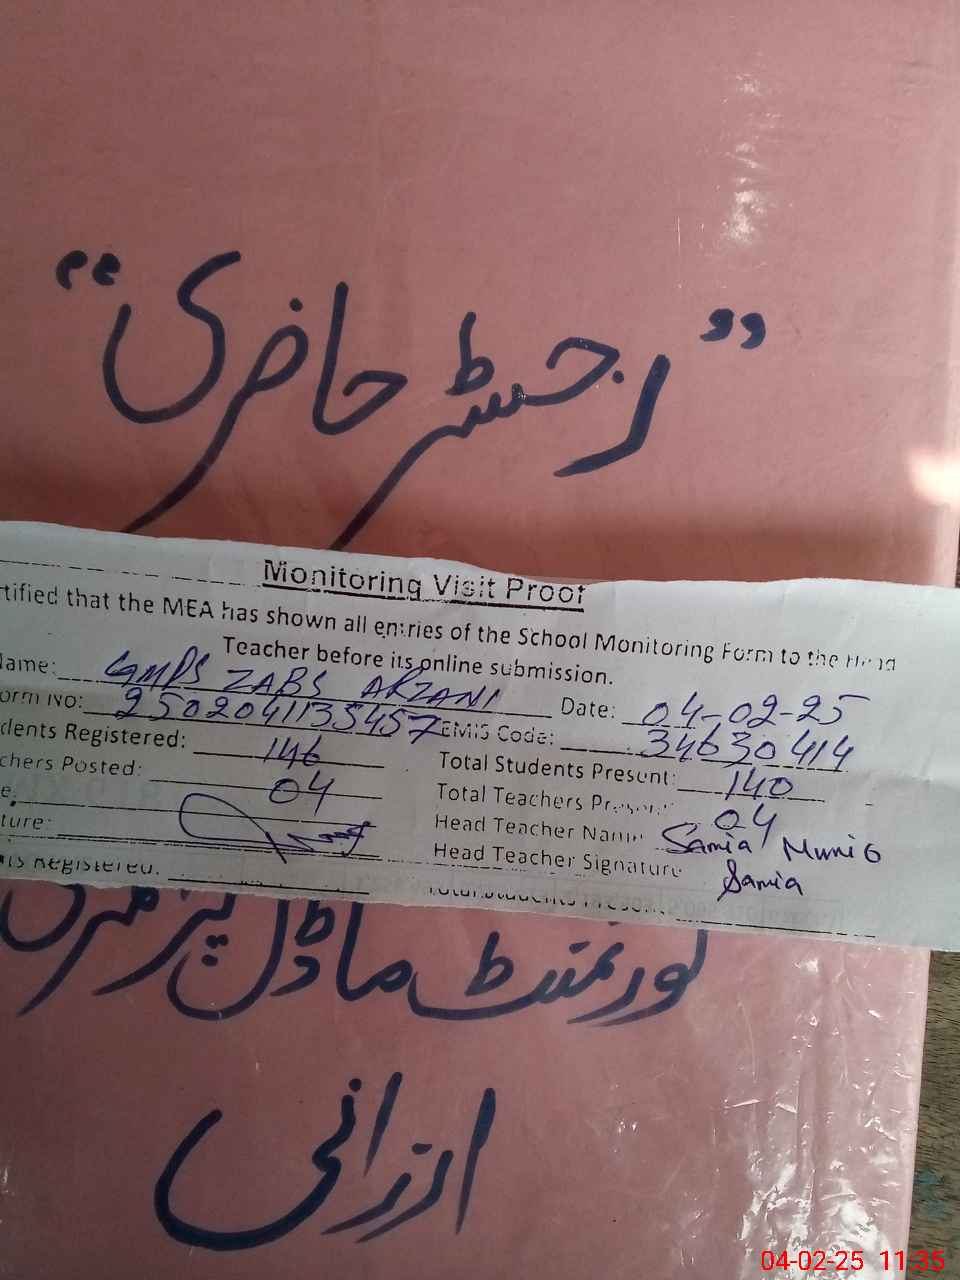 ”رجسٹر حاضری“
Monitoring Visit Proof
rtified that the MEA has shown all entries of the School Monitoring Form to the Head
Teacher before its online submission.
Name: GMPS ZABS ARZANI Date: 04-02-25
orm No: 2502041135457 EMIS Code: 34630414
dents Registered: 146 Total Students Present: 140
chers Posted: 04 Total Teachers Present: 04
e: Head Teacher Name: Samia
ture: Head Teacher Signature Samia
ts Registered: Total Students Present
گورنمنٹ ماڈل پرائمری
ارزانی
04-02-25 11:35